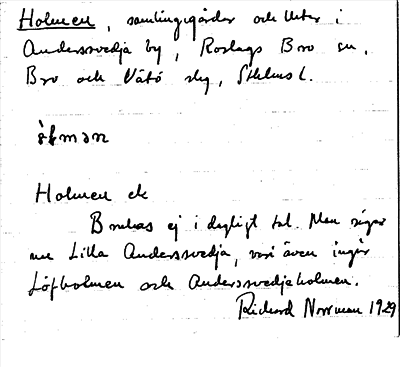 Holmen, samlingsgårdar och uter i
Anderssvedja by, Roslags Bro sn,
Bro och Vätö slg, Sthlms l.
Holmen ek
Brukas ej i dagligt tal. Man säger
nu Lilla Anderssvedja, vari även ingår
Löfholmen och Anderssvedjeholmen.
Richard Norrman 1929